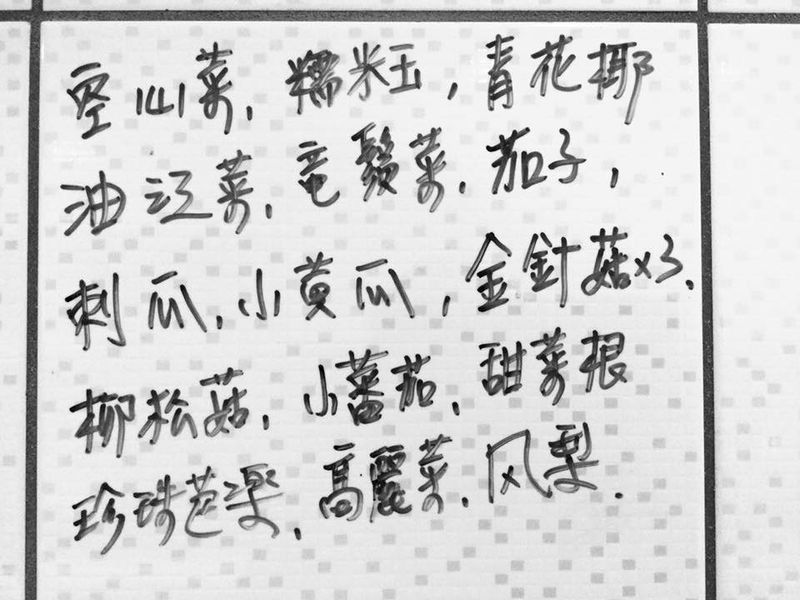 空心菜, 糯米玉, 青花椰
油江菜, 竜鬚菜, 茄子,
刺瓜, 小黄瓜, 金針菇x3,
柳松菇, 小蕃茄, 甜菜根
珍珠芭楽, 高麗菜, 风梨.